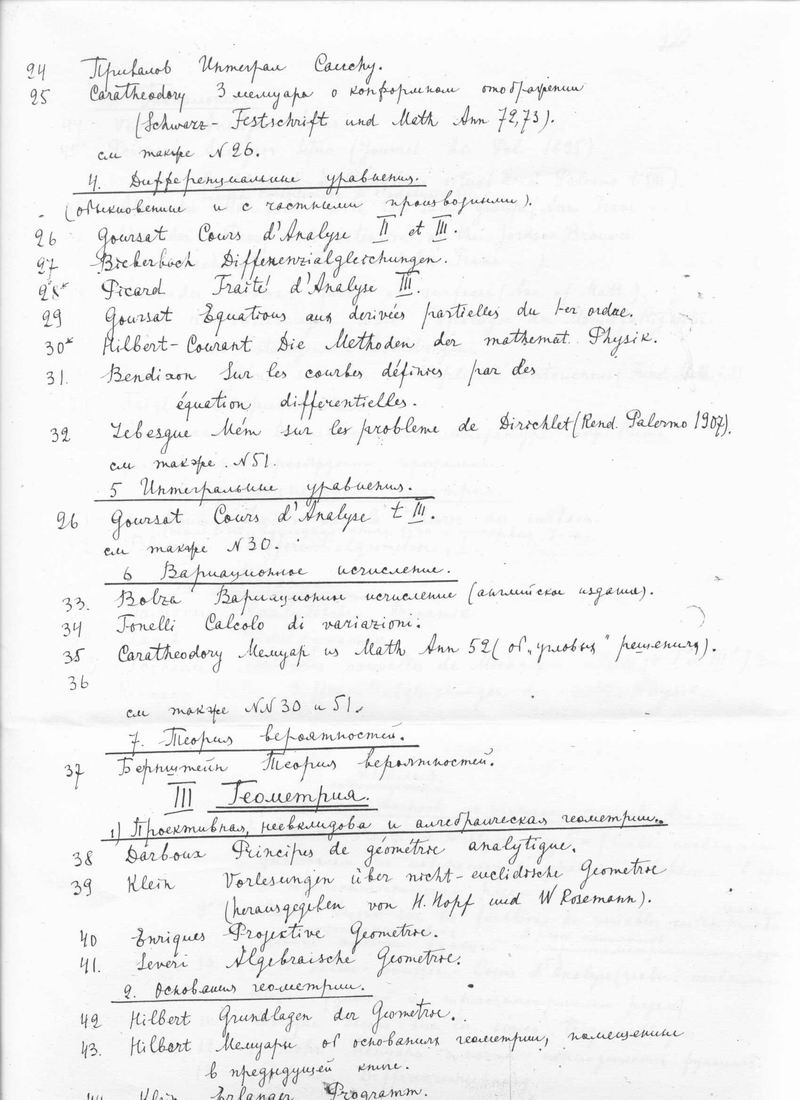 24 Привалов Интеграл Cauchy.
25 Caratheodory 3 мемуара о конформном отображении
(Schwarz- Festschrift und Math Ann 72,73).
см также N26.
4. Дифференциальные уравнения.
(обыкновенные и с частными производными).
26 Goursat Cours d'Analyse II et III.
27 Bieberbach Differenzialgleichungen.
28* Picard Traité d'Analyse III.
29 Goursat Equations aux derivées partielles du 1er ordre.
30* Hilbert-Courant Die Methoden der mathemat. Physik.
31. Bendixon Sur les courbes définies par des
équation differentielles.
32 Lebesgue Mém sur le probleme de Dirichlet (Rend. Palermo 1907).
см также N51.
5 Интегральные уравнения.
26 Goursat Cours d'Analyse t III.
см также N30.
6 Вариационное исчисление.
33. Bolza Вариационное исчисление (английское издание).
34 Tonelli Calcolo di variazioni.
35 Caratheodory Мемуар из Math Ann 52 (об "угловых" решениях).
36
см также NN30 и 51.
7. Теория вероятностей.
37 Бернштейн Теория вероятностей.
III Геометрия.
1) Проективная, неевклидова и алгебраическая геометрии.
38 Darboux Principes de géométrie analytique.
39 Klein Vorlesungen über nicht-euclidische Geometrie
(herausgegeben von H. Hopf und W Rosemann).
40 Enriques Projektive Geometrie.
41. Severi Algebraische Geometrie.
2. Основания геометрии.
42 Hilbert Grundlagen der Geometrie.
43. Hilbert Мемуары об основаниях геометрии, помещенные
в предыдущей книге.
44 Klein Erlanger Programm.